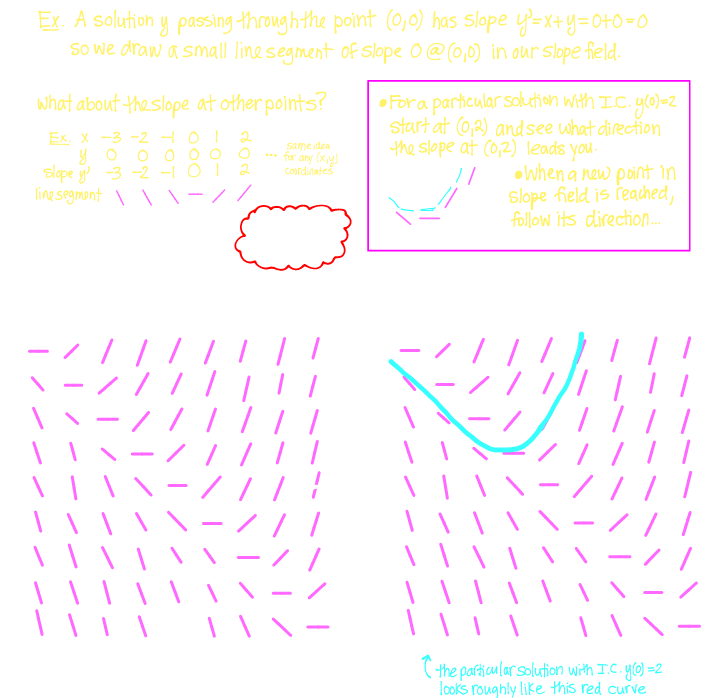 Ex. A solution y passing through the point (0,0) has slope y'=x+y=0+0=0
so we draw a small line segment of slope 0 @ (0,0) in our slope field.
What about the slope at other points?
Ex. x -3 -2 -1 0 1 2
y 0 0 0 0 0 0
slope y' -3 -2 -1 0 1 2
line segment
... same idea
for any (x,y)
coordinates
• For a particular solution with I.C. y(0)=2
start at (0,2) and see what direction
the slope at (0,2) leads you.
• When a new point in
slope field is reached,
follow its direction...
the particular solution with I.C. y(0)=2
looks roughly like this red curve